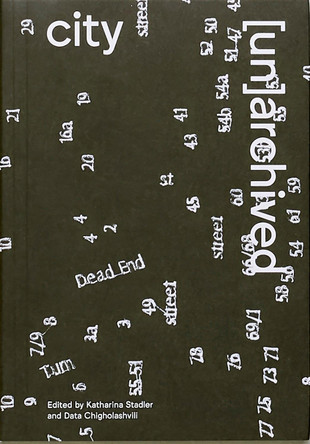 city
[un]archived
street
29
50
52
51-47
54a
54b
19
16a
21
20
41
43
st
45
60
59
61
54
street
4
4
2
Dead End
49
street
58
7/9
8
3a
3
Turn
6
55-51
78
76
73
71
69/1
77
75
10
9
5
Edited by Katharina Stadler
and Data Chigholashvili